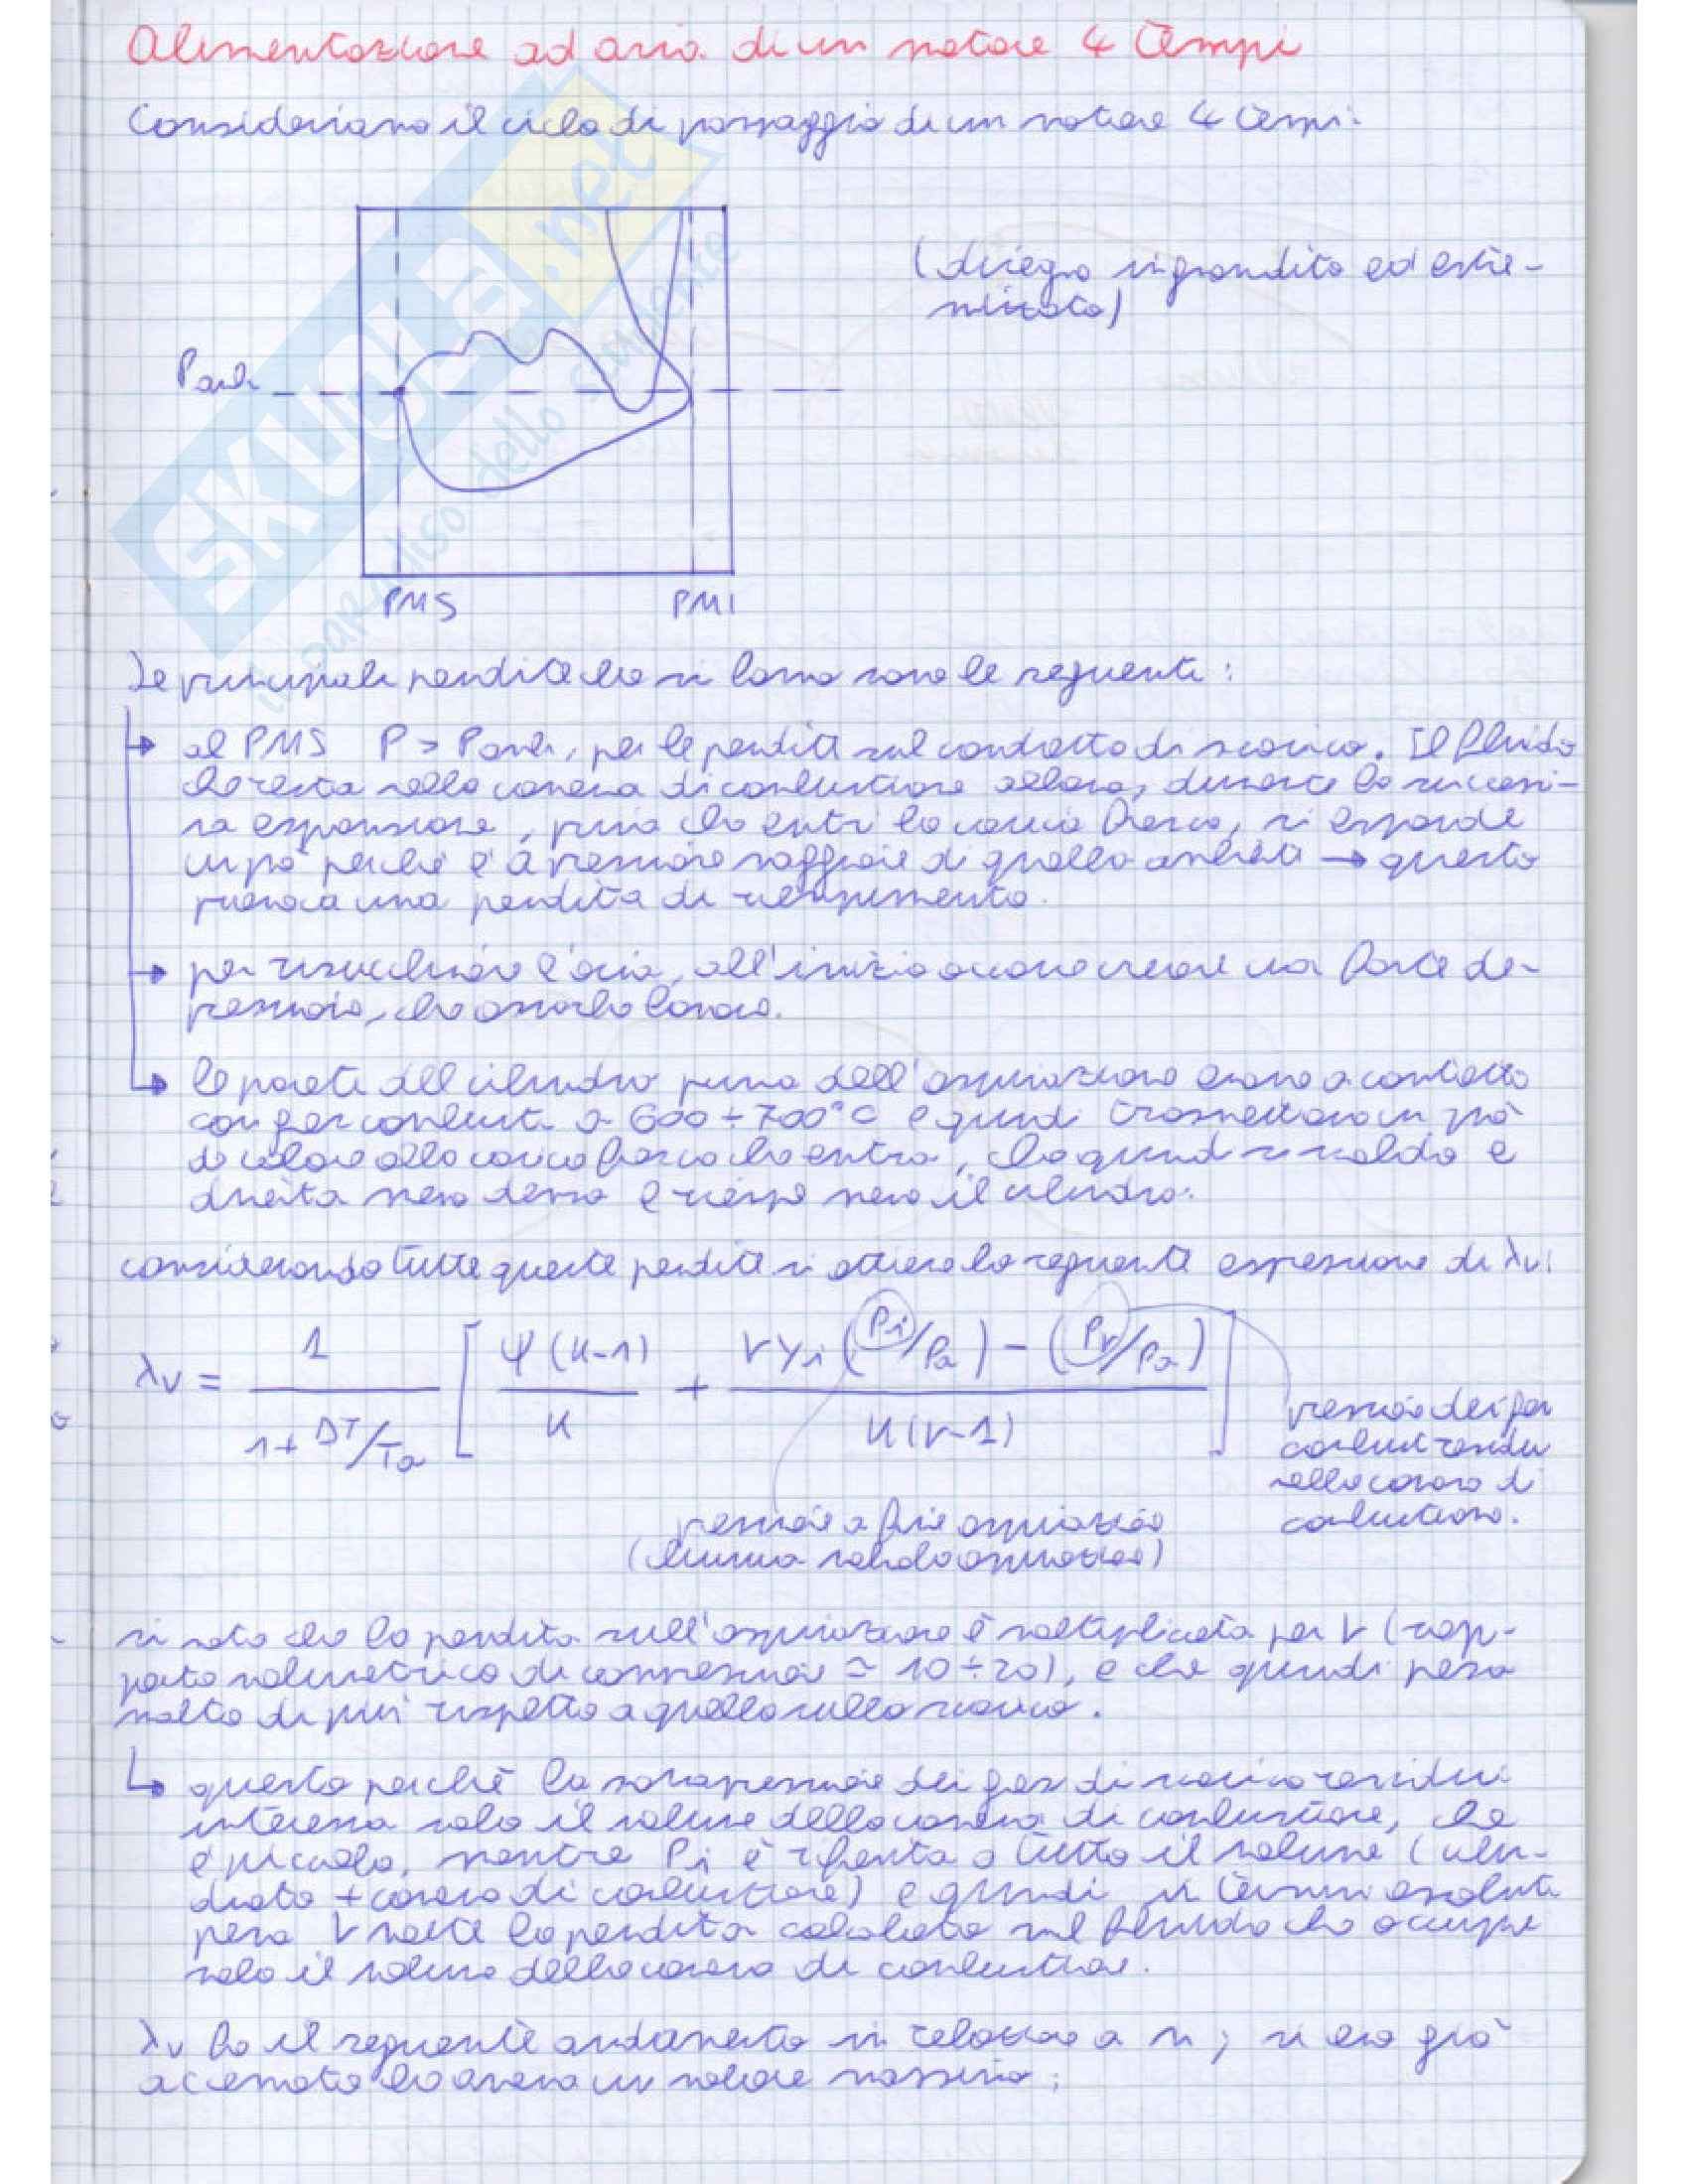 Alimentazione ad aria di un motore 4 tempi
Consideriamo il ciclo di pompaggio di un motore 4 tempi:
(disegno ingrandito ed estre-
mizzato)
Pamb
PMS PMI
SKUOLA.net
il paradiso dello studente
Le principali perdite che si hanno sono le seguenti:
al PMS P > Pamb, per le perdite sul condotto di scarico. Il fluido
che resta nella camera di combustione allora, durante la successi-
va espansione, prima che entri la carica fresca, si espande
un po' perché è a pressione maggiore di quella ambiente → questo
provoca una perdita di riempimento.
per risucchiare l'aria, all'inizio occorre creare una forte de-
pressione, che assorbe lavoro.
le pareti del cilindro prima dell'aspirazione erano a contatto
con gas combusti a 600÷700°C e quindi trasmettono un po'
di calore alla carica fresca che entra, che quindi si scalda e
diventa meno densa e riempie meno il cilindro.
considerando tutte queste perdite si ottiene la seguente espressione di λv:
λv = 1 / (1+ ΔT/Ta) [ ψ(K-1) / K + (r γi (Pi/Pa) - (Pr/Pa)) / K(r-1) ]
pressione dei gas
combusti residui
nella camera di
combustione.
pressione a fine aspirazione
(chiusura valvola aspirazione)
si nota che la perdita sull'aspirazione è moltiplicata per r (rap-
porto volumetrico di compressione ≃ 10÷20), e che quindi pesa
molto di più rispetto a quella sullo scarico.
questo perché la sovrapressione dei gas di scarico residui
interessa solo il volume della camera di combustione, che
è piccolo, mentre Pi è riferita a tutto il volume (cilin-
drata + camera di combustione) e quindi in termini assoluti
pesa r volte la perdita calcolata sul fluido che occupa
solo il volume della camera di combustione.
λv ha il seguente andamento in relazione a n; si era già
accennato che aveva un valore massimo: